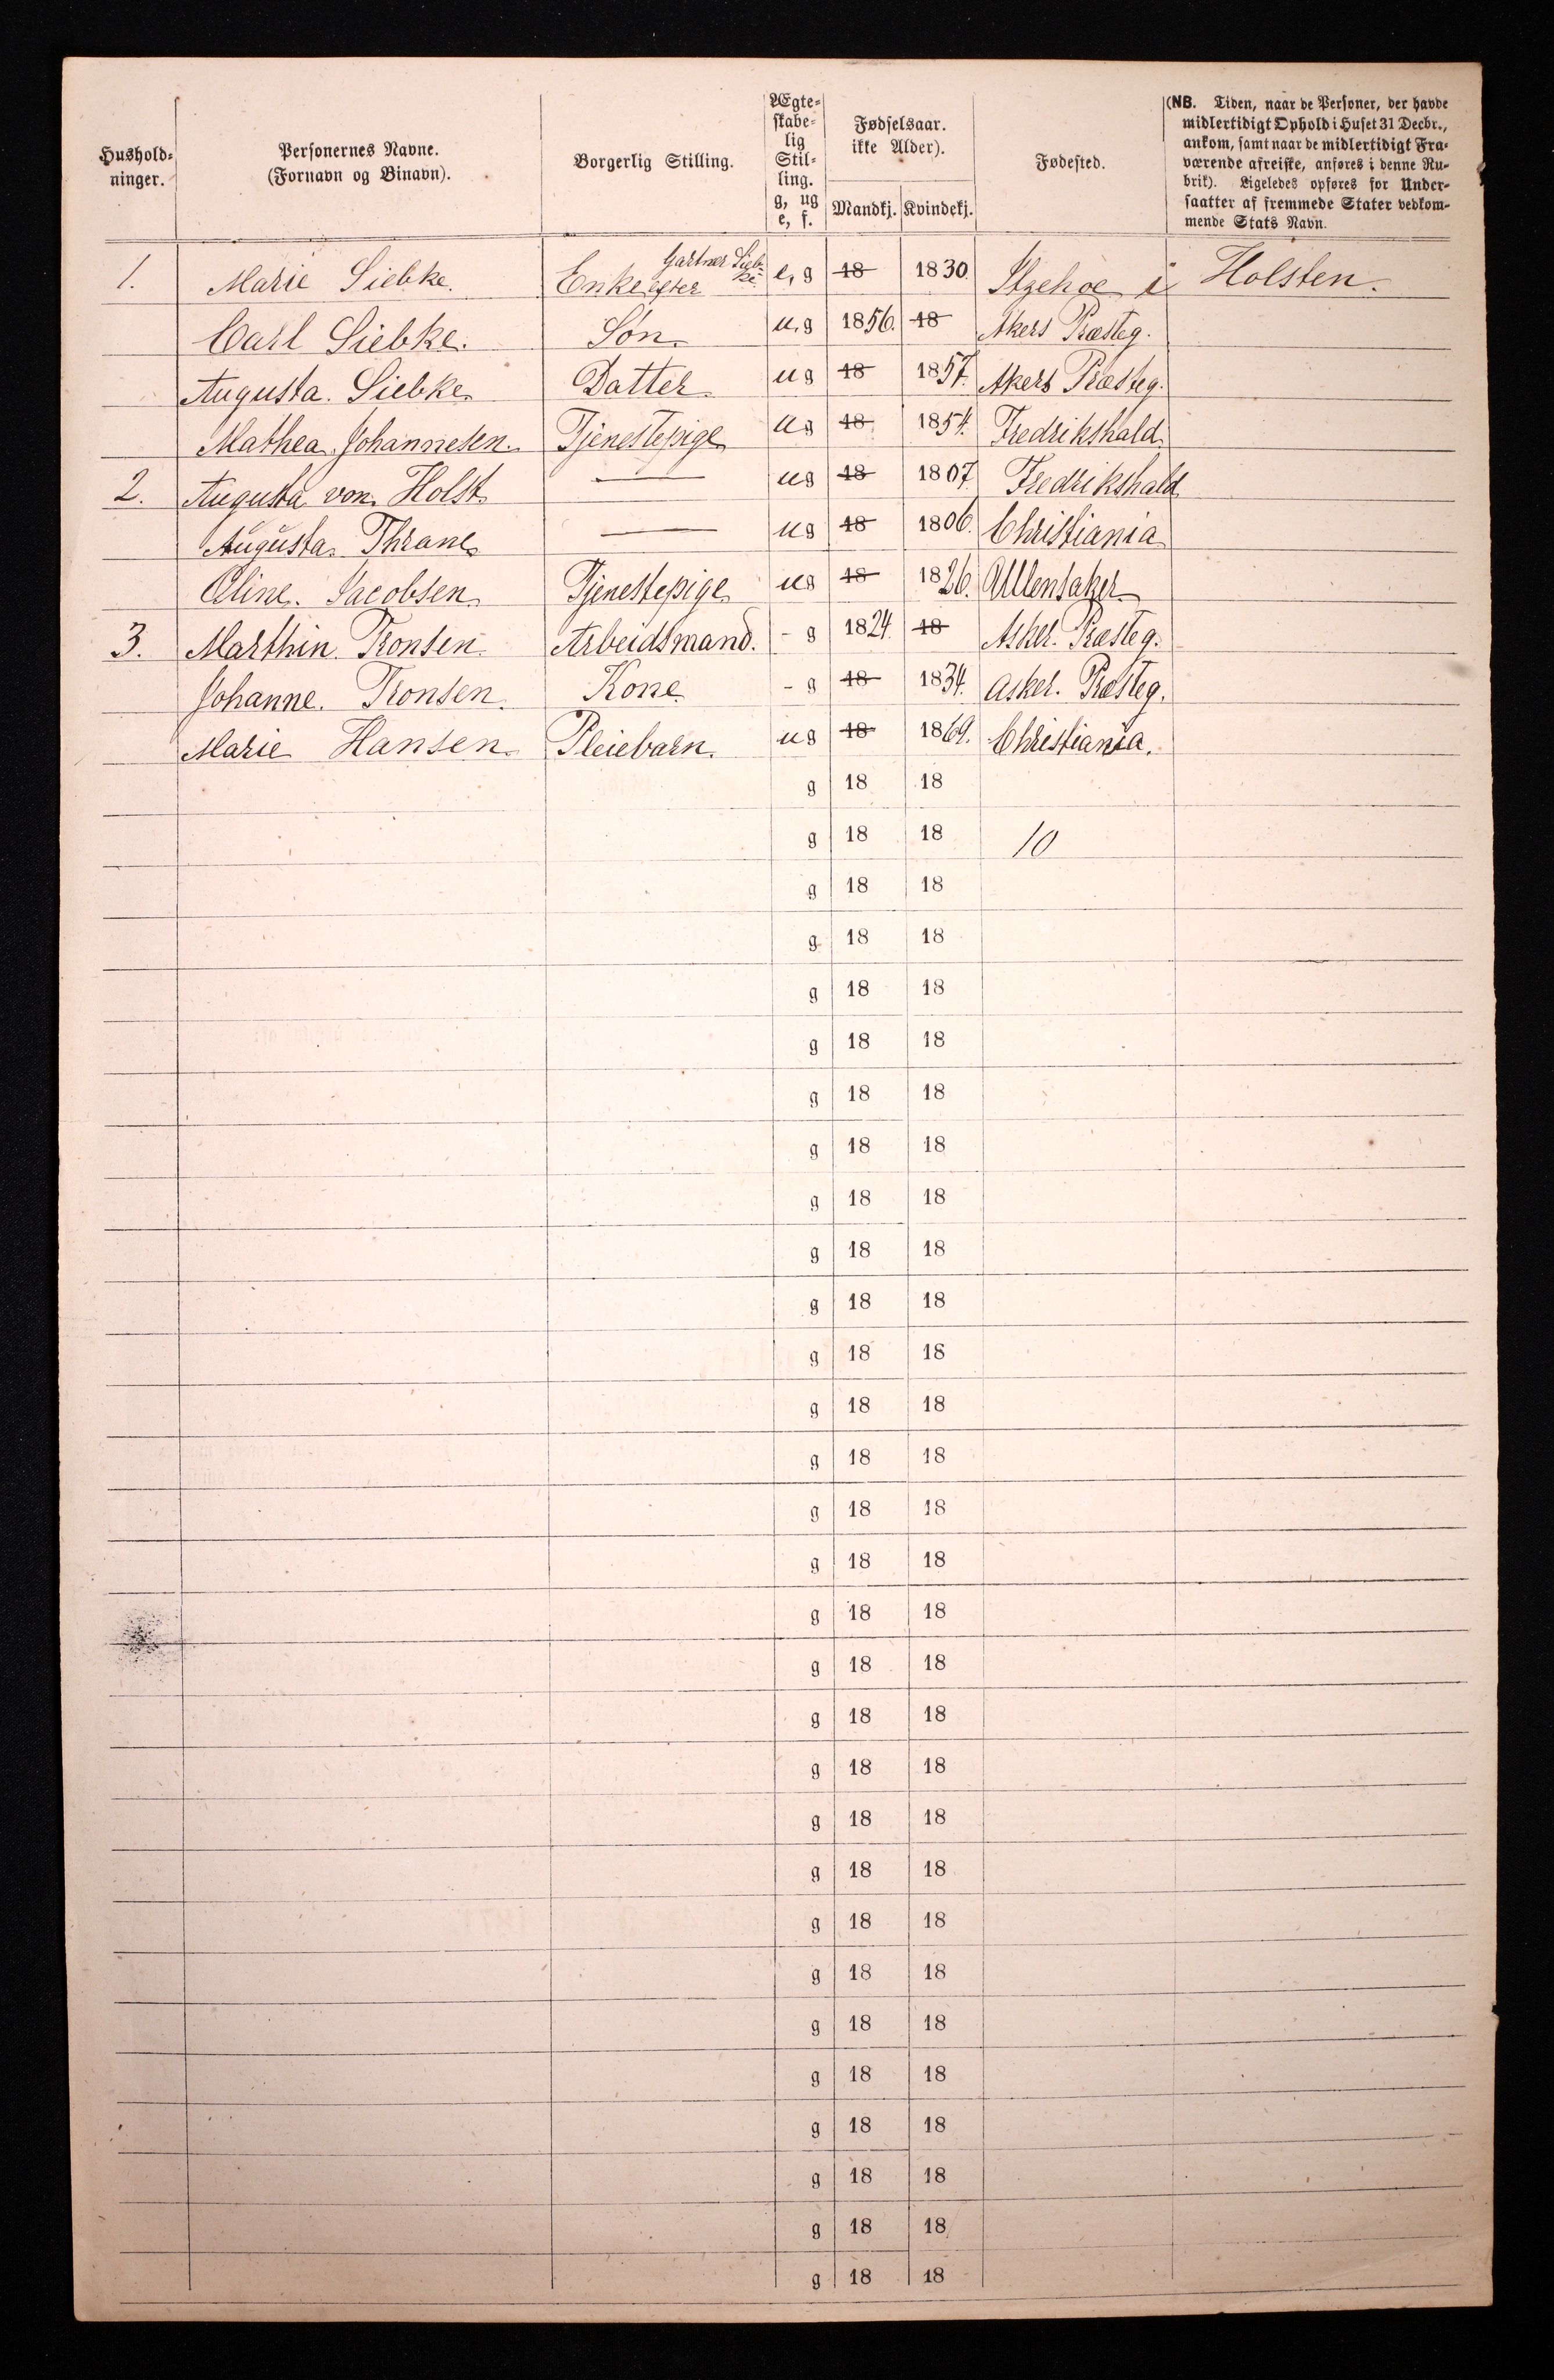 Hushold-
ninger.
Personernes Navne.
(Fornavn og Binavn).
Borgerlig Stilling.
Ægte-
skabe-
lig
Stil-
ling.
g, ug
e, f.
Fødselsaar.
ikke Alder).
Mandkj. Kvindekj.
Fødested.
(NB. Tiden, naar de Personer, der havde
midlertidigt Ophold i Huset 31 Decbr.,
ankom, samt naar de midlertidigt Fra-
værende afreiste, anføres i denne Ru-
brik). Ligeledes opføres for Under-
saatter af fremmede Stater vedkom-
mende Stats Navn.
1. Marie Siebke. Enke efter Gartner Sieb-ke e, g 18 1830. Itzehoe i Holsten.
Carl Siebke. Søn. u, g 1856. 18 Akers Præsteg.
Augusta. Siebke. Datter. ug 18 1857. Akers Præsteg.
Mathea. Johannesen. Tjenestepige ug 18 1854. Fredrikshald.
2. Augusta von Holst. — ug 18 1807. Fredrikshald
Augusta. Thrane. — ug 18 1806. Christiania
Oline. Jacobsen. Tjenestepige. ug 18 1826. Ullensaker
3. Marthin. Tronsen. Arbeidsmand. - g 1824. 18 Asker. Præsteg.
Johanne. Tronsen. Kone. - g 18 1834. Asker. Præsteg.
Marie Hansen. Pleiebarn. ug 18 1869. Christiania.
g 18 18
g 18 18 10
g 18 18
g 18 18
g 18 18
g 18 18
g 18 18
g 18 18
g 18 18
g 18 18
g 18 18
g 18 18
g 18 18
g 18 18
g 18 18
g 18 18
g 18 18
g 18 18
g 18 18
g 18 18
g 18 18
g 18 18
g 18 18
g 18 18
g 18 18
g 18 18
g 18 18
g 18 18
g 18 18
g 18 18